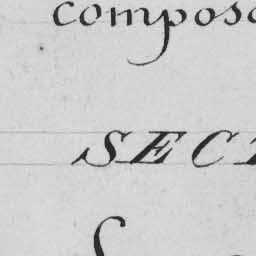 compos
SEC